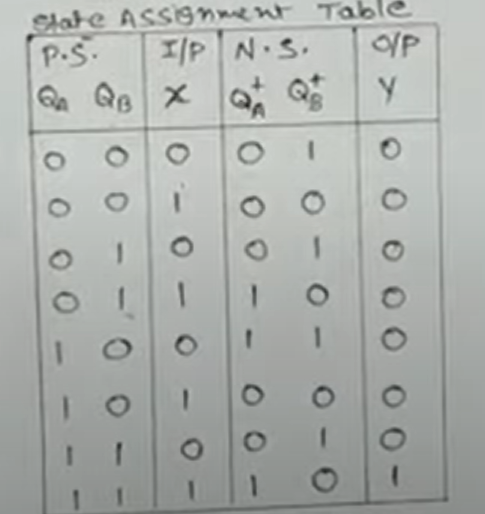 State Assignment Table
P.S. I/P N.S. O/P
QA QB X QA+ QB+ Y
0 0 0 0 1 0
0 0 1 0 0 0
0 1 0 0 1 0
0 1 1 1 0 0
1 0 0 1 1 0
1 0 1 0 0 0
1 1 0 0 1 0
1 1 1 1 0 1